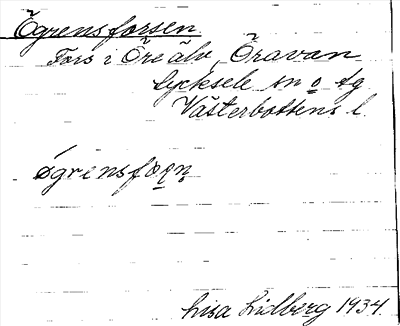 Ögrensforsen
Fors i Öre älv, Öravan
Lycksele sn o tg
Västerbottens l.
øgrensfoꞃn̥
Lisa Lidberg 1934